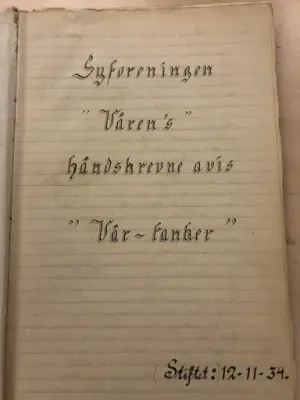 Syforeningen
" Våren's "
håndskrevne avis
" Vår ~ tanker "
(Stiftet: 12-11-34.